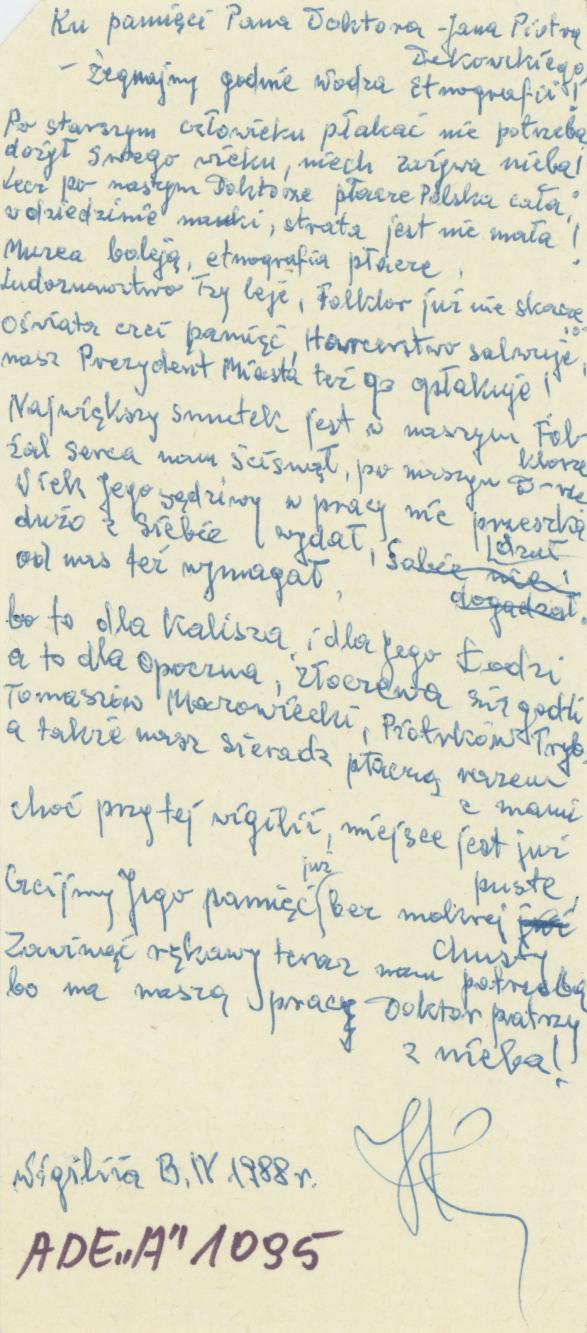 Ku pamięci Pana Doktora - Jana Piotra
Dekowskiego
- Żegnajmy godnie wodza Etnografii!
Po starszym człowieku płakać nie potrzeba
dożył swego wieku, niech zażywa nieba!
Lecz po naszym Doktorze płacze Polska cała,
w dziedzinie nauki, strata jest nie mała!
Muzea boleją, etnografia płacze,
Ludoznawstwo łzy leje, Folklor już nie skacze
Oświata czci pamięć, Harcerstwo salutuje,
nasz Prezydent Miasta też go opłakuje!
Największy smutek jest w naszym Fol-
klorze
żal serca nam ścisnął, po naszym D-rze
Wiek Jego sędziwy w pracy nie przeszka
dzał
dużo z Siebie wydał,
od nas też wymagał, Sobie nie
dogadzał.
bo to dla Kalisza, i dla Jego Łodzi
a to dla Opoczna, Złoczewa się godzi
Tomaszów Mazowiecki, Piotrków Tryb.
a także nasz Sieradz płaczą razem
z nami
choć przy tej wigilii, miejsce jest już
puste,
Czcijmy Jego pamięć już bez mokrej
chusty
Zawinąć rękawy teraz nam potrzeba
bo na naszą pracę Doktor patrzy
z nieba!
Wigilia B.IV 1988 r.
ADE„A" 1095